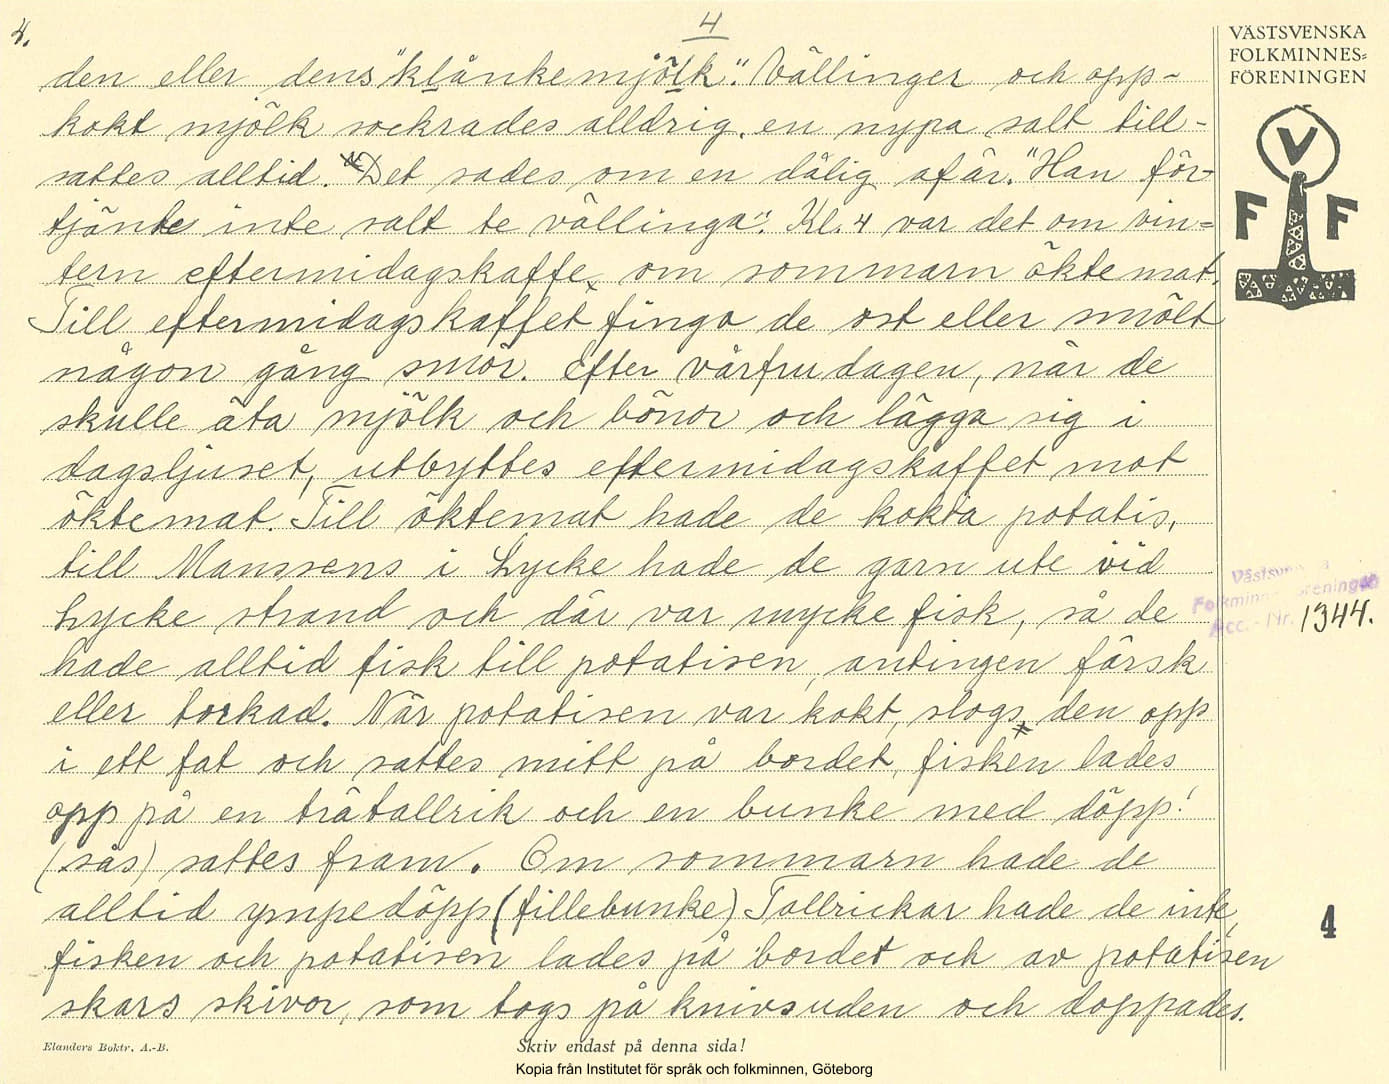 4.
4
den eller dens "klånkemjölk". Vällinger och opp-
kokt mjölk sockrades alldrig, en nypa salt till-
sattes alltid. "Det sades om en dålig afär." Han för-
tjänte inte salt te vällinga". Kl. 4 var det om vin-
tern eftermidagskaffe, om sommarn öktemat.
Till eftermidagskaffet fingo de ost eller smölt
någon gång smör. Efter vårfrudagen, när de
skulle äta mjölk och bönor och lägga sig i
dagsljuset, utbyttes eftermidagskaffet mot
öktemat. Till öktemat hade de kokta potatis,
till Manssens i Lycke hade de garn ute vid
Lycke strand och där var mycke fisk, så de
hade alltid fisk till potatisen, antingen färsk
eller torkad. När potatisen var kokt, slogs den opp
i ett fat och sattes mitt på bordet, fisken lades
opp på en trätallrik och en bunke med döpp!
(sås) sattes fram. Om sommarn hade de
alltid ympedöpp (fillebunke) Tallrickar hade de inte,
fisken och potatisen lades på bordet och av potatisen
skars skivor, som togs på knivsuden och doppades.
VÄSTSVENSKA
FOLKMINNES=
FÖRENINGEN
V
F F
Folkminnesföreningen
Acc. - Nr. 1344.
4
Elanders Boktr. A.-B.
Skriv endast på denna sida!
Kopia från Institutet för språk och folkminnen, Göteborg